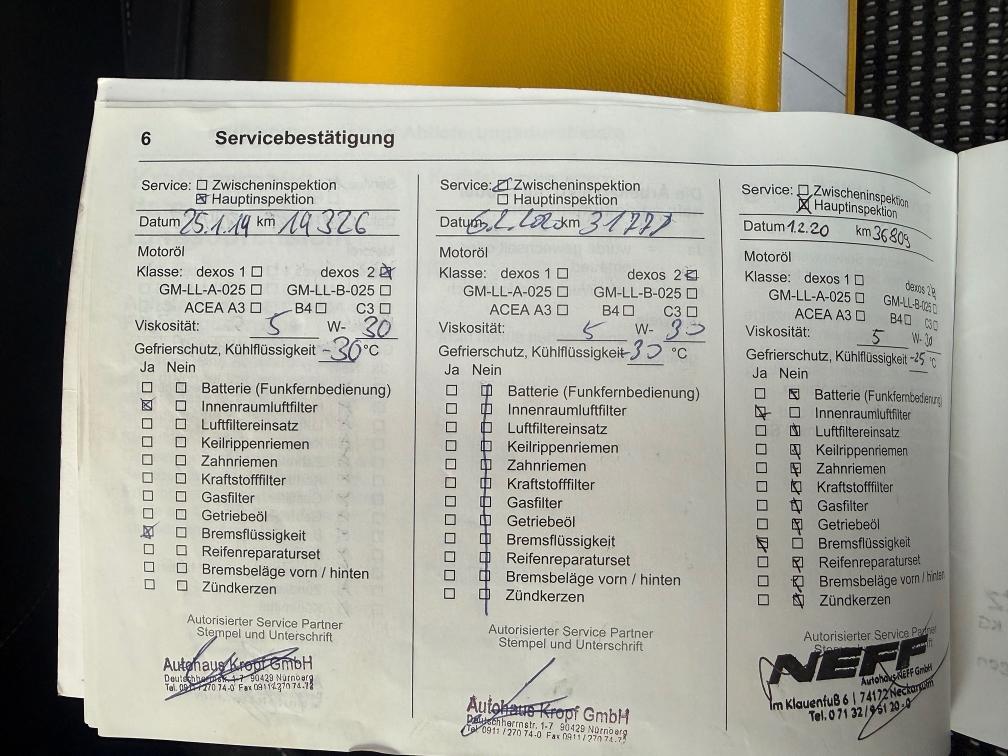 6 Servicebestätigung
Service: Zwischeninspektion
Hauptinspektion
Datum 25.1.19 km 19326
Motoröl
Klasse: dexos 1 dexos 2
GM-LL-A-025 GM-LL-B-025
ACEA A3 B4 C3
Viskosität: 5 W- 30
Gefrierschutz, Kühlflüssigkeit -30 °C
Ja Nein
Batterie (Funkfernbedienung)
Innenraumluftfilter
Luftfiltereinsatz
Keilrippenriemen
Zahnriemen
Kraftstofffilter
Gasfilter
Getriebeöl
Bremsflüssigkeit
Reifenreparaturset
Bremsbeläge vorn / hinten
Zündkerzen
Autorisierter Service Partner
Stempel und Unterschrift
Autohaus Kropf GmbH
Deutschherrnstr. 1-7 90429 Nürnberg
Tel. 0911 / 270 74-0 Fax 0911 / 270 74-78
Service: Zwischeninspektion
Hauptinspektion
Datum km
Motoröl
Klasse: dexos 1 dexos 2
GM-LL-A-025 GM-LL-B-025
ACEA A3 B4 C3
Viskosität: 5 W- 30
Gefrierschutz, Kühlflüssigkeit -30 °C
Ja Nein
Batterie (Funkfernbedienung)
Innenraumluftfilter
Luftfiltereinsatz
Keilrippenriemen
Zahnriemen
Kraftstofffilter
Gasfilter
Getriebeöl
Bremsflüssigkeit
Reifenreparaturset
Bremsbeläge vorn / hinten
Zündkerzen
Autorisierter Service Partner
Stempel und Unterschrift
Autohaus Kropf GmbH
Deutschherrnstr. 1-7 90429 Nürnberg
Tel. 0911 / 270 74-0 Fax 0911 / 270 74-78
Service: Zwischeninspektion
Hauptinspektion
Datum 1.2.20 km 36809
Motoröl
Klasse: dexos 1 dexos 2
GM-LL-A-025 GM-LL-B-025
ACEA A3 B4 C3
Viskosität: 5 W- 30
Gefrierschutz, Kühlflüssigkeit -25 °C
Ja Nein
Batterie (Funkfernbedienung)
Innenraumluftfilter
Luftfiltereinsatz
Keilrippenriemen
Zahnriemen
Kraftstofffilter
Gasfilter
Getriebeöl
Bremsflüssigkeit
Reifenreparaturset
Bremsbeläge vorn / hinten
Zündkerzen
Autorisierter Service Partner
NEFF
Autohaus NEFF GmbH
Im Klauenfuß 6 | 74172 Neckarsulm
Tel. 0 71 32 / 9 51 20-0